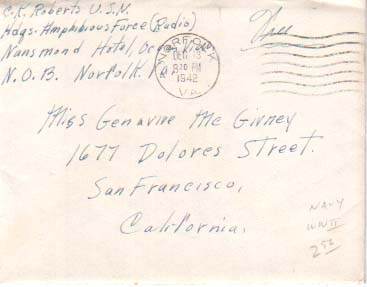 C.K. Roberts U.S.N.
Hdqs. Amphibious Force (Radio)
Nansmond Hotel, Ocean View
N.O.B. Norfolk
Free
NORFOLK
DEC 3
8 30 PM
1942
VA.
Miss Genavive Mc Givney
1677 Dolores Street.
San Francisco,
California.
NAVY
WWII